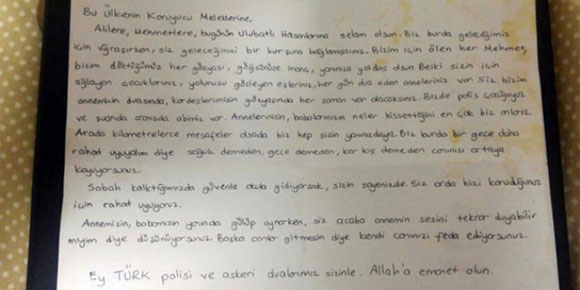 Bu Ülkenin Koruyucu Meleklerine,
Alilere, Mehmetlere, bugünün Ulubatlı Hasanlarına selam olsun. Biz burda geleceğimiz
için uğraşırken, siz geleceğinizi bir kurşuna bağlamışsınız. Bizim için ölen her Mehmet,
bizim döktüğümüz her gözyaşı, göğsünüze inanç, yanınıza yoldaş olsun. Belki sizin için
ağlayan çocuklarınız, yolunuzu gözleyen eşleriniz, her gün dua eden anneleriniz var. Siz bizim
annemizin duasında, kardeşlerimizin gözyaşında her zaman var olacaksınız. Bizde polis çocuğuyuz
ve şuanda aramızda abimiz var. Annelerinizin, babalarınızın neler hissettiğini en çok biz anlarız.
Arada kilometrelerce mesafeler olsada biz hep sizin yanınızdayız. Biz burda bir gece daha
rahat uyuyalım diye soğuk demeden, gece demeden, kar kış demeden canınızı ortaya
koyuyorsunuz.
Sabah kalktığımızda güvenle okula gidiyorsak, sizin sayenizde. Siz orda bizi koruduğunuz
için rahat uyuyoruz.
Annemizin, babamızın yanında gülüp oynarken, siz acaba annemin sesini tekrar duyabilir
miyim diye düşünüyorsunuz. Başka canlar gitmesin diye kendi canınızı feda ediyorsunuz.
Ey TÜRK polisi ve askeri dualarımız sizinle. Allah'a emanet olun.